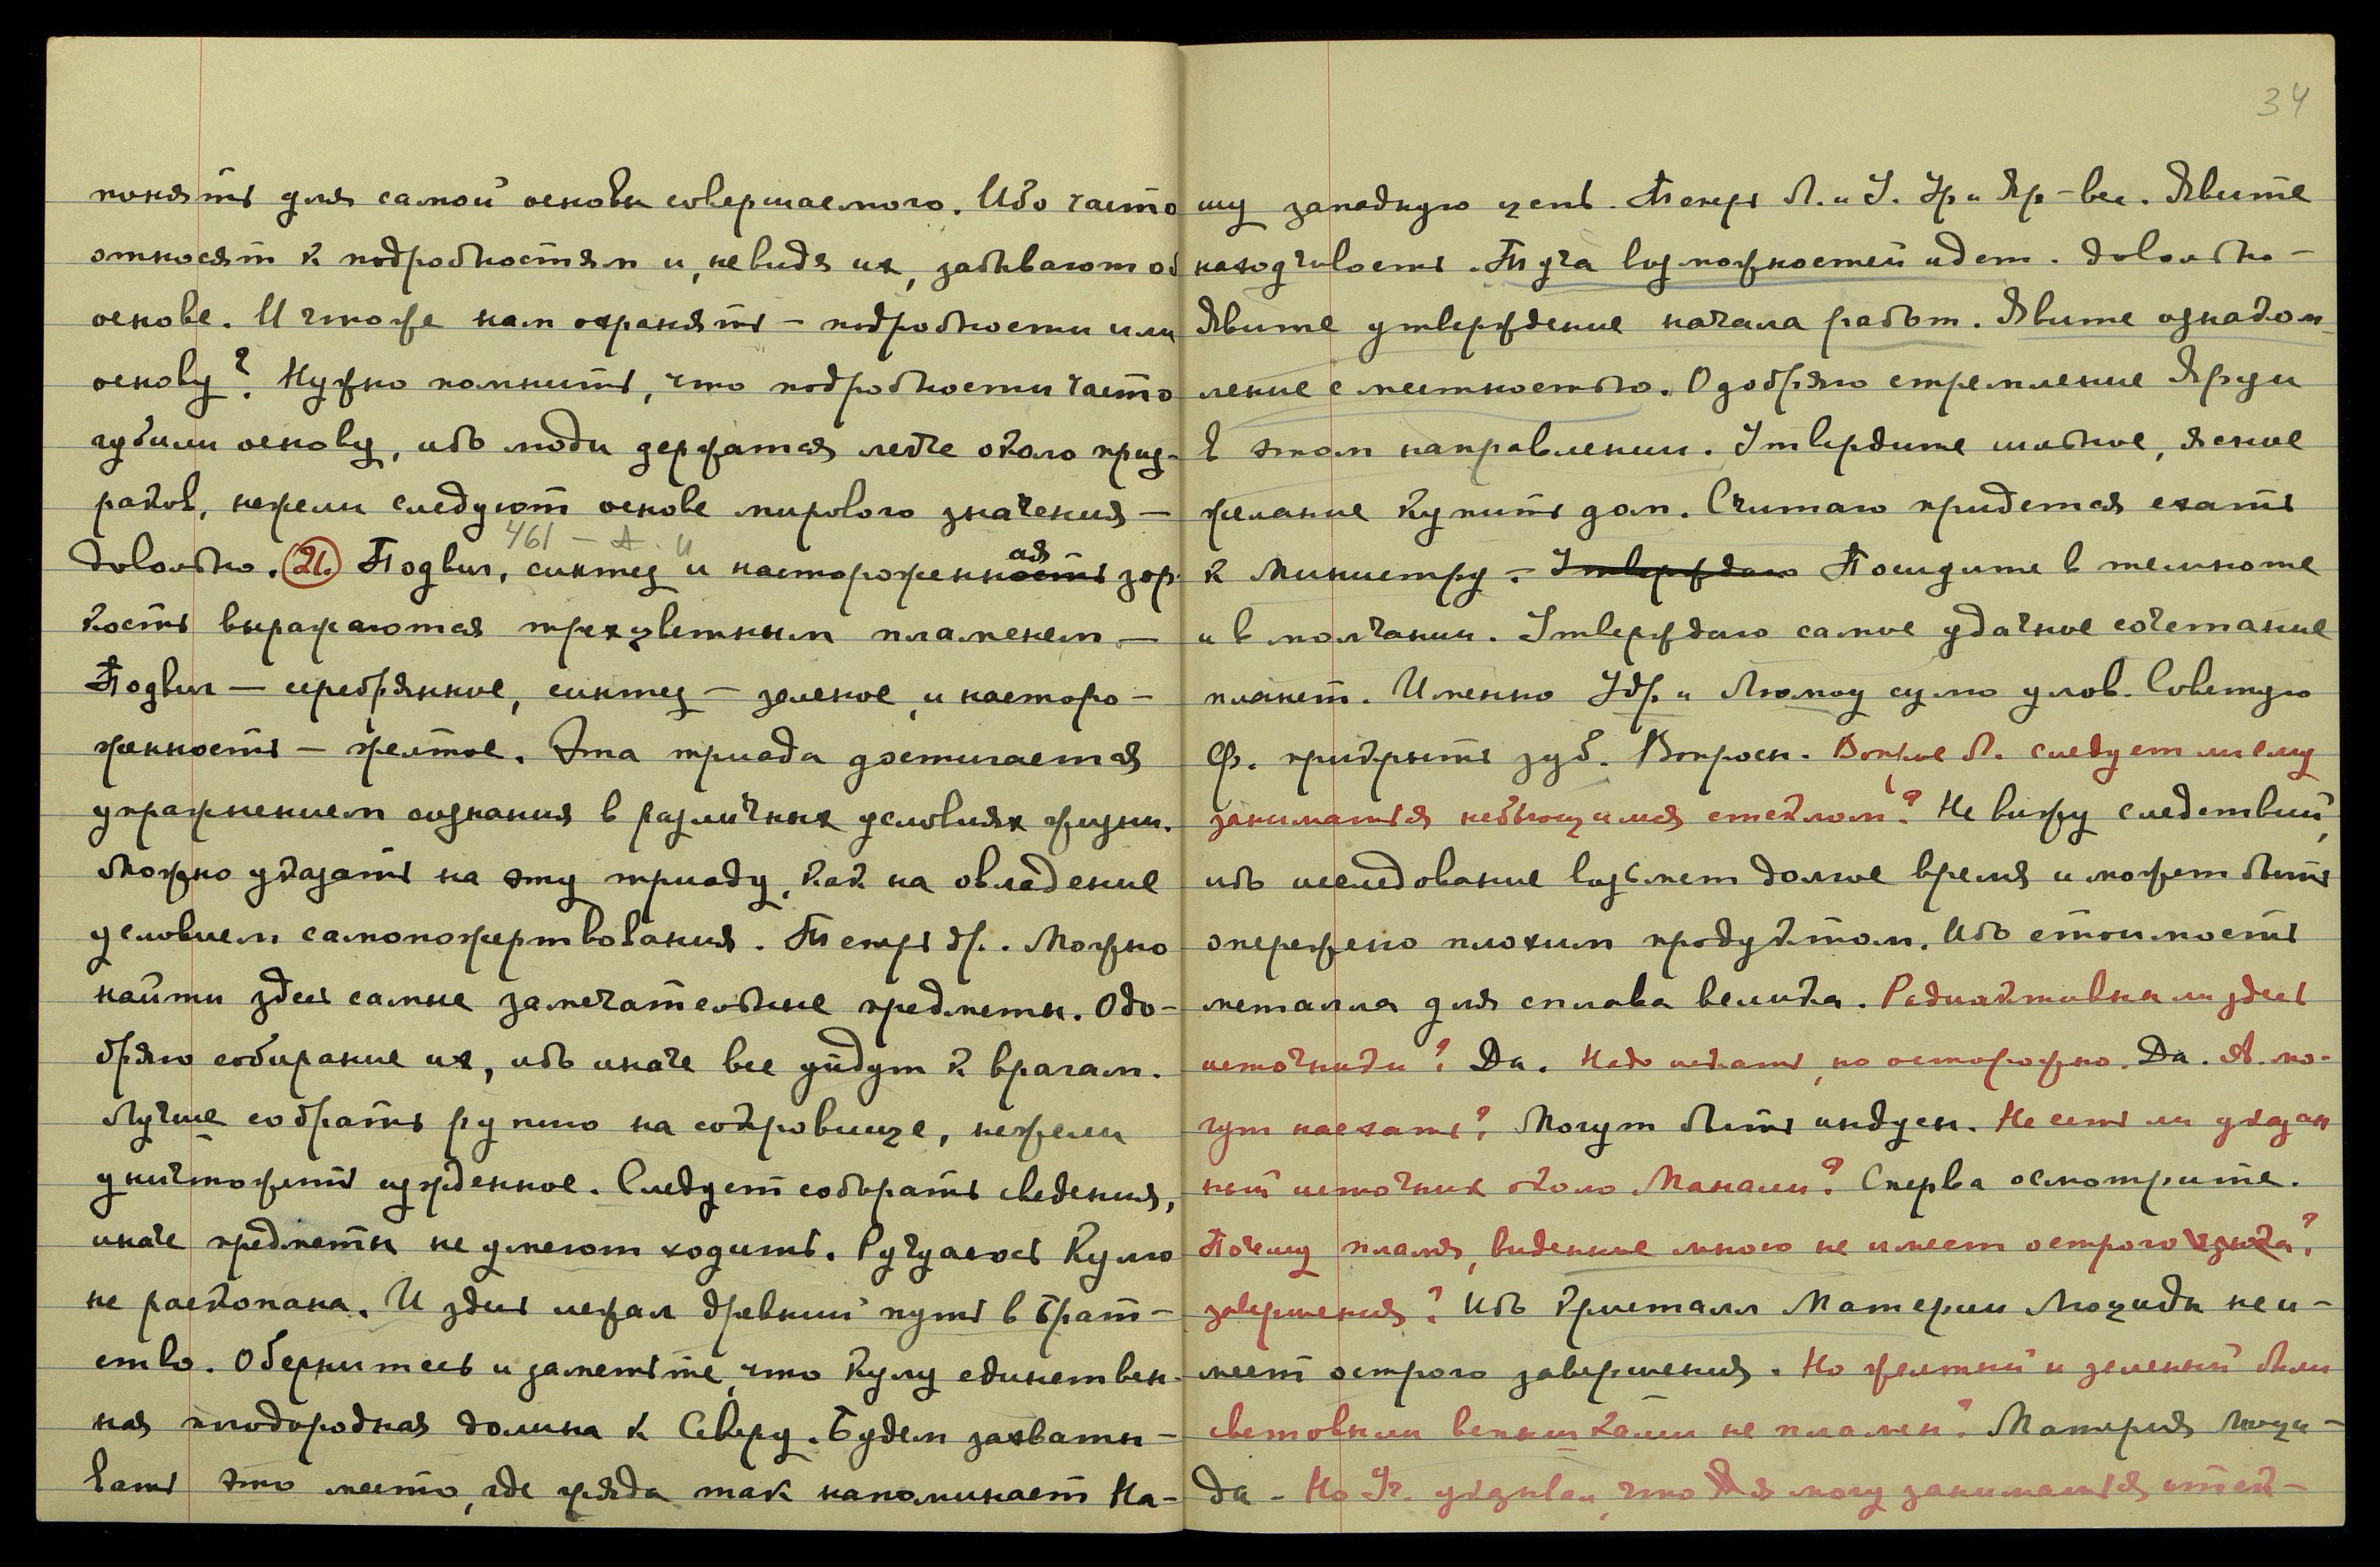 понять для самой основы совершаемого. Ибо часто
относят к подробностям и, не видя их, забывают об
основе. И что же нам охранять — подробности или
основу? Нужно помнить, что подробности часто
губили основу, ибо люди держатся легче около приз-
раков, нежели следуют основе мирового значения —
461 — А. И
Довольно. 21. Подвиг, синтез и настороженность ая зор-
кость выражаются трехцветным пламенем —
Подвиг — серебрянное, синтез — зеленое, и насторо-
женность — желтое. Эта триада достигается
упражнением сознания в различных условиях жизни.
Можно указать на эту триаду, как на овладение
условием самопожертвования. Теперь др. Можно
найти здесь самые замечательные предметы. Одо-
бряю собирание их, ибо иначе все уйдут к врагам.
Лучше собрать рупию на сокровище, нежели
уничтожить изжденное. Следует собрать сведения,
иначе предметы не умеют ходить. Ручаюсь Кулю
не раскопана. И здесь лежал древний путь в Брат-
ство. Обернитесь и заметьте, что Кулу единствен-
ная плодородная долина к Северу. Будем захваты-
вать это место, где гряда так напоминает На-
34
шу западную цепь. Теперь Л. и У. Ур и Яр — вес. Явите
находчивость. Туча возможностей идет. Довольно —
Явите утверждение начала работ. Явите ознаком-
ление с местностью. Одобряю стремление Яруи
в этом направлении. Утвердите сильное, ясное
желание купить дом. Считаю придется ехать
к Министру. — Утверждаю Посидите в темноте
и в молчании. Утверждаю самое удачное сочетание
планет. Именно Удр. и Люмоу сумо улов. Советую
Ф. прикрыть зуб. Вопросы. Вопрос Л. следует ли ему
заниматься небьющимся стеклом? Не вижу следствий,
ибо исследование возьмет долгое время и может быть
опережено плохим продуктом. Ибо стоимость
металла для сплава велика. Радиактивны ли здесь
источники? Да. Надо искать, но осторожно. Да. А мо-
гут наехать? Могут быть индусы. Не есть ли указан
ный источник около Манали? Сперва осмотрите.
Почему пламя, виденное мною не имеет острого языка?
завершения? Ибо кристалл Материи Люциды не и-
меет острого завершения. Но желтый и зеленый были
световыми вспышками не пламен? Материя Люци-
да — Но Уч. указывал, что Я я могу заниматься стек-